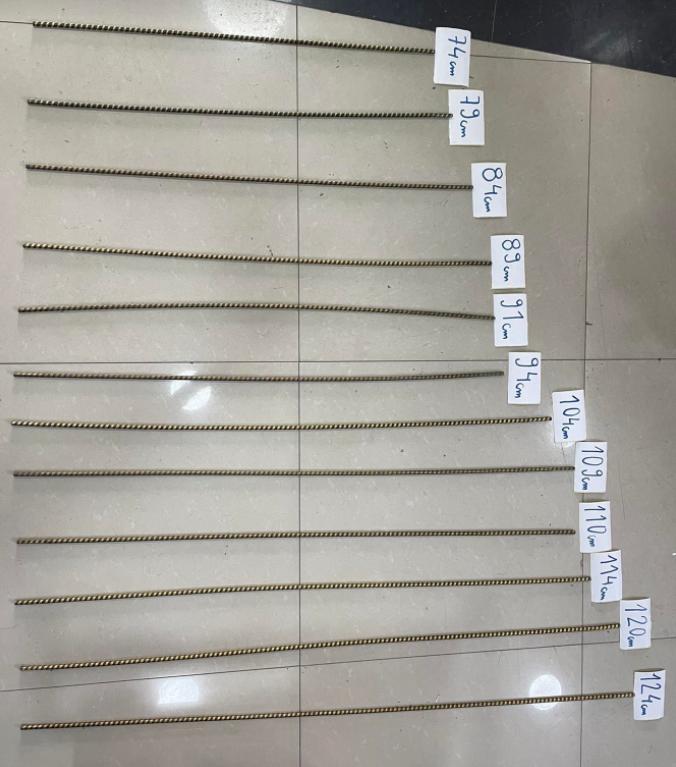 74cm
79cm
84cm
89cm
91cm
94cm
104cm
109cm
110cm
114cm
120cm
124cm